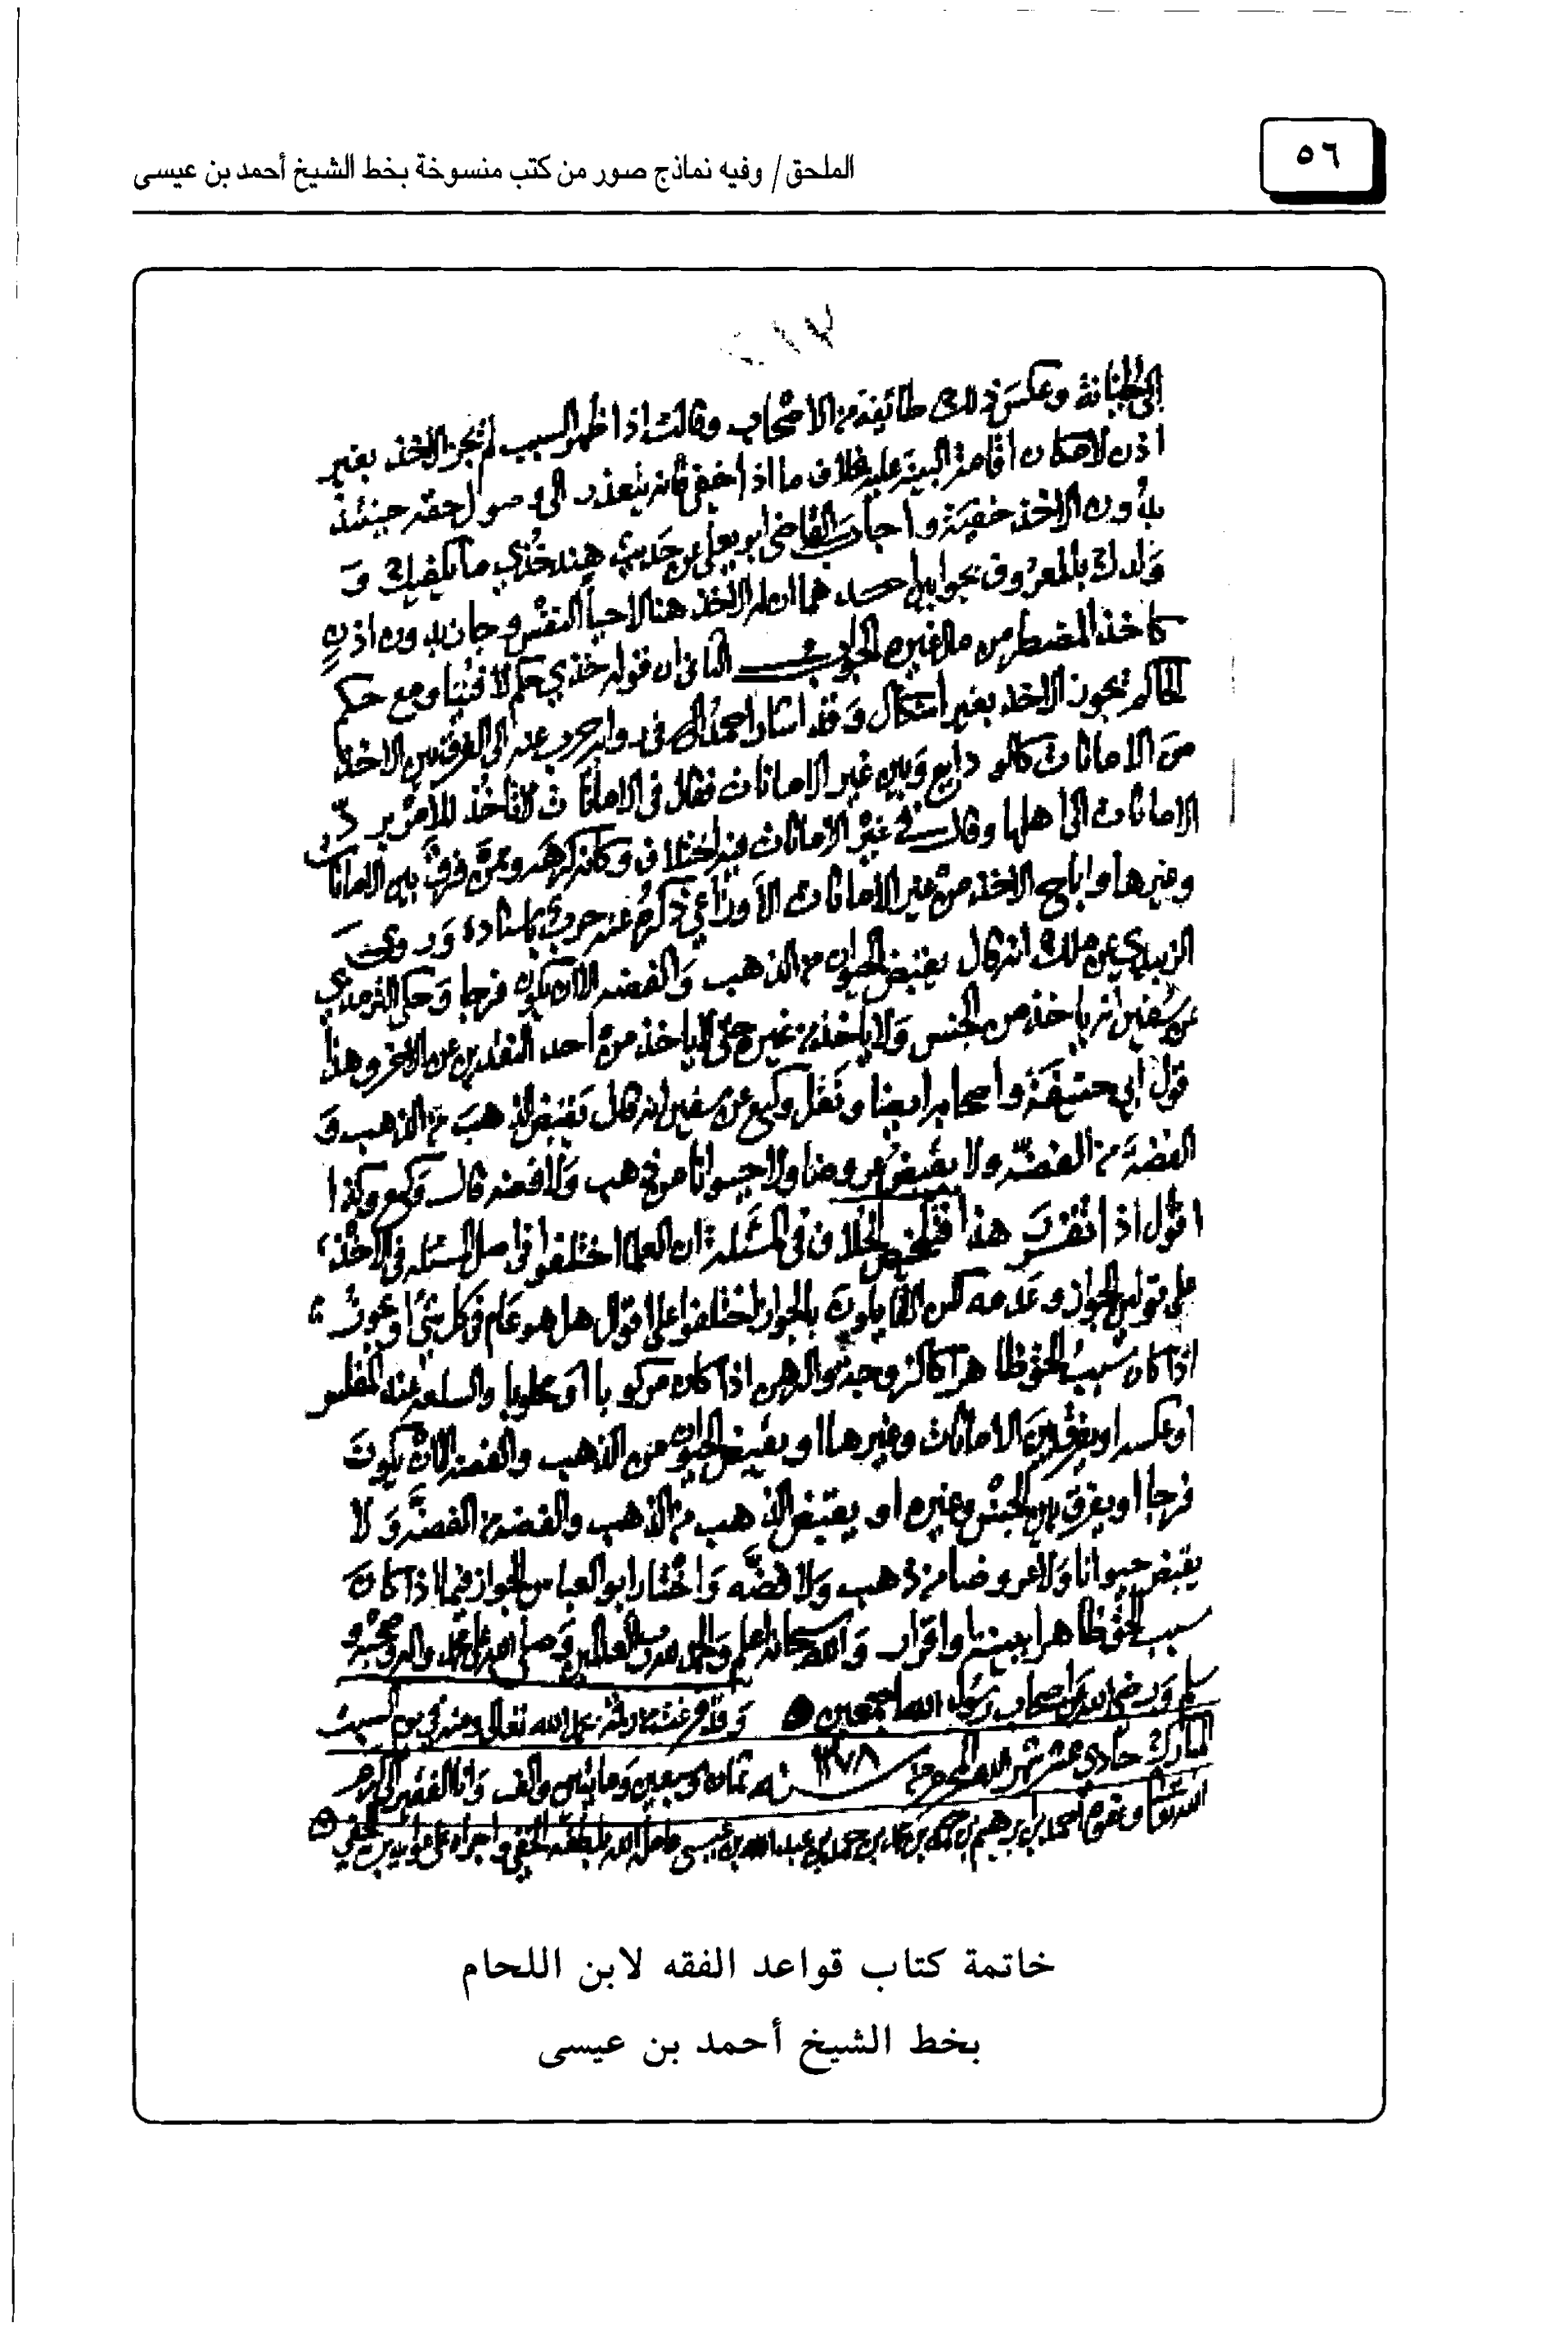 ٥٦
الملحق/ وفيه نماذج صور من كتب منسوخة بخط الشيخ أحمد بن عيسى
إلى الخيانة وعكس ذلك طائفة من الأصحاب وقالت اذا ظهر السبب لم يجز الأخذ بغير
اذن لامكان اقامة البينة عليه بخلاف ما اذا خفي فانه يتعذر الوصول لحقه حينئذ
بدون الاخذ خفية واجاب القاضي ابو يعلى عن حديث هند خذي ما يكفيك و
ولدك بالمعروف بجوابين احدهما ان الاخذ هنا لاحياء النفس وجاز بدون اذن
كاخذ المضطر من مال غيره الثاني ان قوله خذي حكم لا فتيا ومع حكم
الحاكم يجوز الاخذ بغير اشكال وقد اشار احمد الى في رواية حرب عنه الى الفرق بين الاخذ
من الامانات كالودايع وبين غير الامانات فقال في الامانات لا ياخذ للامر برد
الامانات الى اهلها وقال في غير الامانات فيه اختلاف وكانه كرهه وممن فرق بين الامانات
وغيرها واباح الاخذ من غير الامانات الاوزاعي ذكره عنه حرب باسناده وروى
الزبيدي عن ملك انه قال يقتضي الحيوان من الذهب والفضة الا ان يكون فرجا وحكى الترمذي
عن سفين انه ياخذ من الجنس ولا ياخذ من غيره حتى لا ياخذ من احد النقدين عن الاخر وهذا
قول ابي حنيفة واصحابه ايضا ونقل وكيع عن سفين انه قال يقتضي الذهب من الذهب و
الفضة من الفضة ولا يقتضي عروضا ولا حيوانا من ذهب ولا فضة قال وكيع وكذا
اقول اذا تقرر هذا فتلخص الخلاف في المسئلة ان العلماء اختلفوا في اصل المسئلة في الاخذ
على قولين الجواز وعدمه لكن القايلون بالجواز اختلفوا على اقوال هل هو عام في كل شيء او يجوز
اذا كان سبب الحق ظاهرا كالزوجية والرهن اذا كان مركوبا او محلوبا والسلعة عند المفلس
او عكسه او يفرق بين الامانات وغيرها او يقتضي الحيوان من الذهب والفضة الا ان يكون
فرجا او يفرق بين الجنس وغيره او يقتضي الذهب من الذهب والفضة من الفضة ولا
يقبض حيوانا ولا عروضا من ذهب ولا فضة واختار ابو العباس الجواز فيما اذا كان
سبب الحق ظاهرا ببينة او اقرار والله سبحانه اعلم والحمد لله رب العالمين وصلى الله على محمد واله وصحبه و
سلم ورضي الله عن اصحاب رسول الله اجمعين وقد فرغت بحمد الله تعالى ومنه في يوم السبت
المبارك حادي عشر شهر الله المحرم سنة ١٢٧٨ ثمان وسبعين ومايتين والف وانا الفقير الى رحمة
الله تعالى وعفوه احمد بن ابرهيم بن حمد بن محمد بن حمد بن عبدالله بن عيسى عامله الله بلطفه الخفي واجراه على عوايد بره الحفي
خاتمة كتاب قواعد الفقه لابن اللحام
بخط الشيخ أحمد بن عيسى